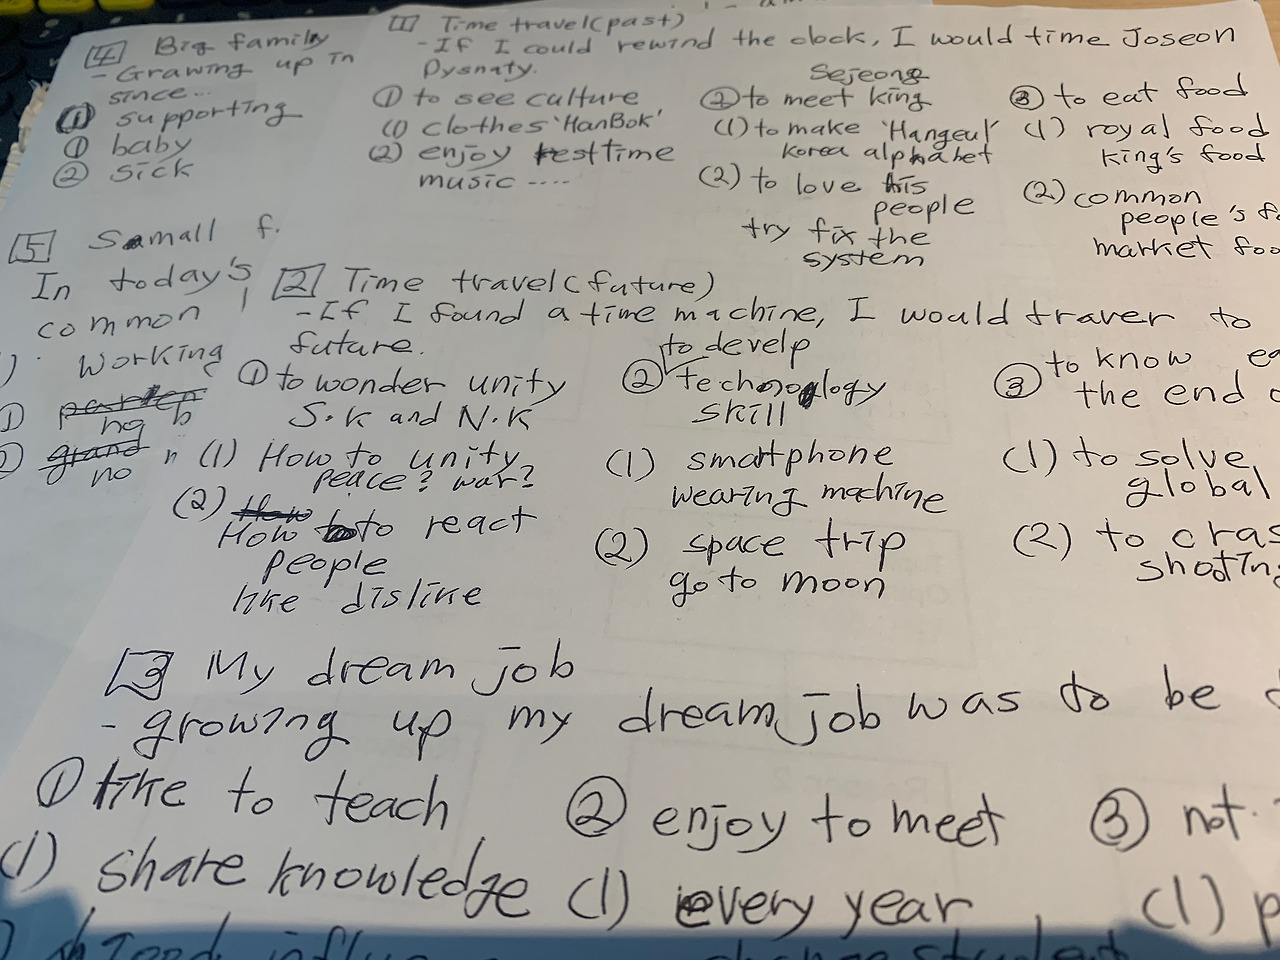 [1] Time travel(past)
- If I could rewind the clock, I would time Joseon
Dysnaty.
① to see culture
(1) clothes 'HanBok'
(2) enjoy resttime
music ....
Sejeong
② to meet king
(1) to make 'Hangeul'
Korea alphabet
(2) to love his
people
try fix the
system
③ to eat food
(1) royal food
king's food
(2) common
people's
market
[4] Big family
- Grawing up in
since...
(1) supporting
① baby
② sick
[5] Samall f.
In today's
common
working
①
no
②
no
[2] Time travel(future)
- If I found a time machine, I would traver to
future.
① to wonder unity
S.K and N.K
(1) How to unity
peace? war?
(2) How to react
people
like dislike
② to develp
techonoglogy
skill
(1) smartphone
wearing machine
(2) space trip
go to moon
③ to know
the end
(1) to solve
global
(2) to
[3] My dream job
- growing up my dream job was to be
① like to teach
(1) share knowledge
② enjoy to meet
(1) every year
③ not
(1)